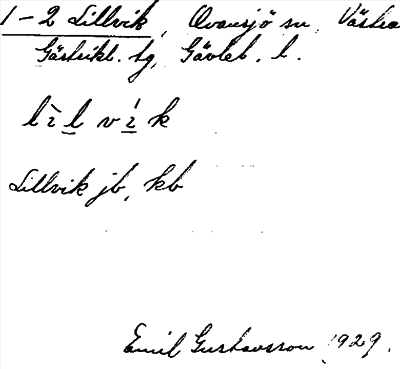 1-2 Lillvik, Ovansjö sn, Västra
Gästrikl. tg, Gävleb. l.
lìl vík
Lillvik jb, kb
Emil Gustavsson 1929.